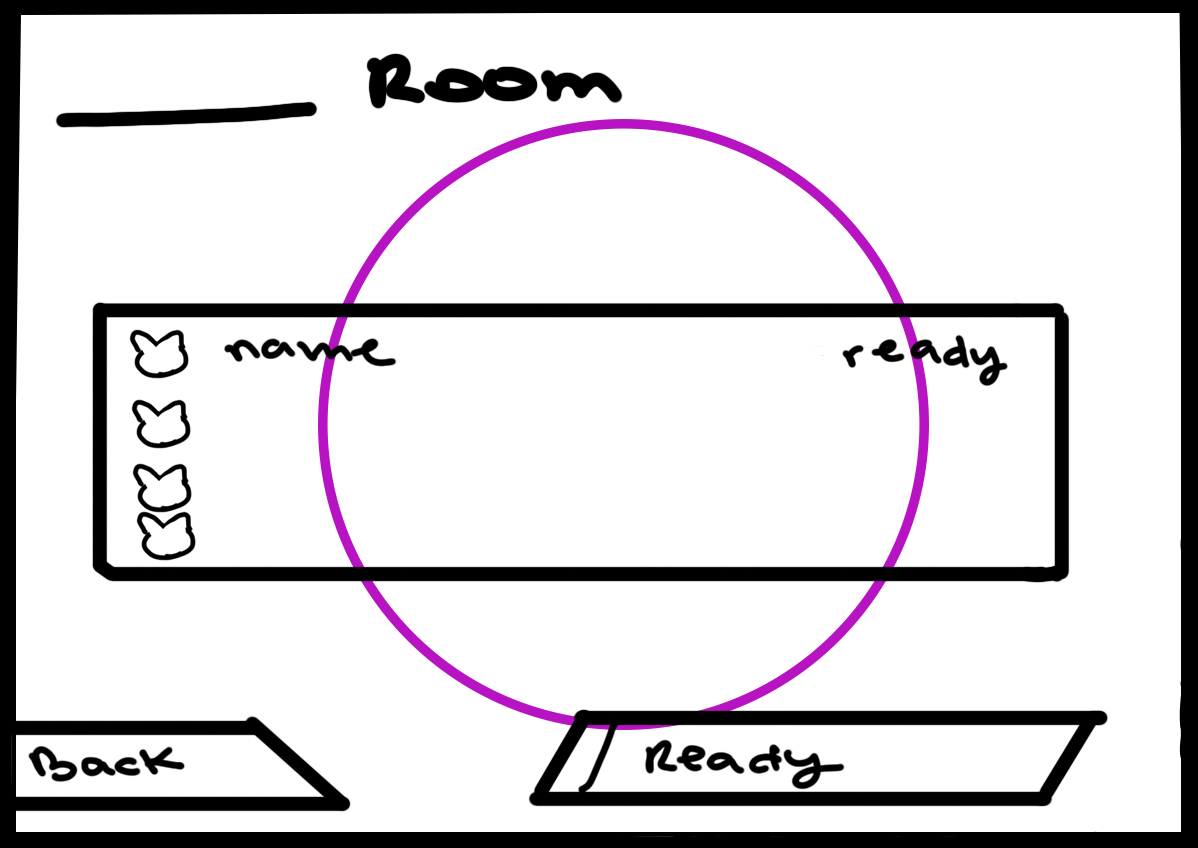 Room
name ready
Back Ready